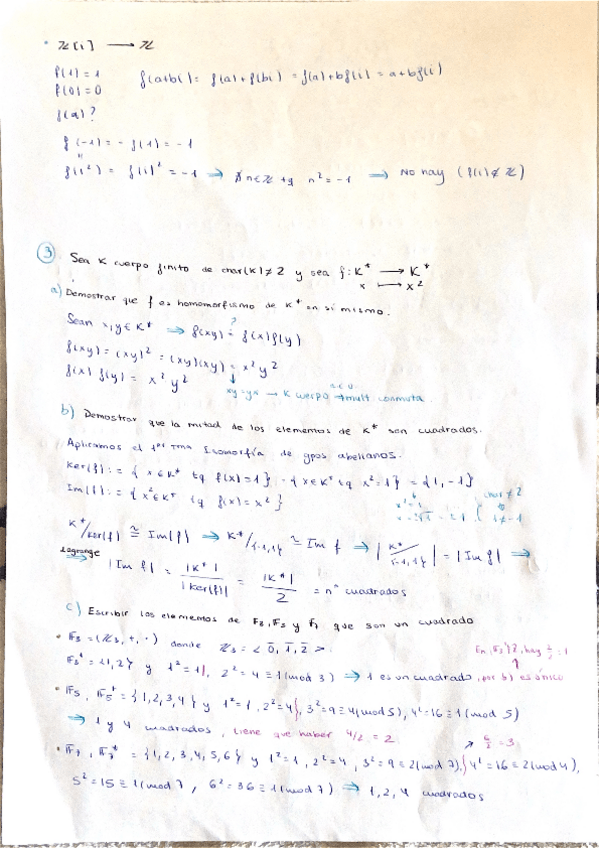 * ℤ[i] → ℤ
f(1) = 1
f(0) = 0
f(a+bi) = f(a) + f(bi) = f(a) + bf(i) = a + bf(i)
f(a)?
f(-1) = - f(1) = -1
f(i²) = f(i)² = -1 ⇒ ∄ n∈ℤ tq n² = -1 ⇒ No hay (f(i) ∉ ℤ)
③ Sea K cuerpo finito de char(K) ≠ 2 y sea f: K* → K*
x ↦ x²
a) Demostrar que f es homomorfismo de K* en sí mismo.
Sean x,y ∈ K* ⇒ f(xy) =? f(x)f(y)
f(xy) = (xy)² = (xy)(xy) = x²y²
f(x) f(y) = x² y²
xy = yx → K cuerpo → mult. conmuta.
b) Demostrar que la mitad de los elementos de K* son cuadrados.
Aplicamos el 1er Tma Isomorfía de gpos abelianos.
Ker(f) := { x ∈ K* tq f(x) = 1 } = { x ∈ K* tq x² = 1 } = {1, -1}
Im(f) := { x² ∈ K* tq f(x) = x² }
char ≠ 2
1 ≠ -1
K*/Ker(f) ≅ Im(f) ⇒ K*/{-1,1} ≅ Im f ⇒ | K*/{-1,1} | = |Im f| ⇒
Lagrange ⇒ |Im f| = |K*| / |Ker(f)| = |K*| / 2 = nº cuadrados
c) Escribir los elementos de F₃, F₅ y F₇ que son un cuadrado
En (F₃*)², hay 2/2 = 1
• F₃ = (ℤ₃, +, ·) donde ℤ₃ = < 0, 1, 2 >
F₃* = {1,2} y 1² = 1, 2² = 4 ≡ 1 (mod 3) ⇒ 1 es un cuadrado, por b) es único
• F₅, F₅* = {1,2,3,4} y 1² = 1, 2² = 4, 3² = 9 ≡ 4 (mod 5), 4² = 16 ≡ 1 (mod 5)
⇒ 1 y 4 cuadrados, tiene que haber 4/2 = 2
6/2 = 3
• F₇, F₇* = {1,2,3,4,5,6} y 1² = 1, 2² = 4, 3² = 9 ≡ 2 (mod 7), 4² = 16 ≡ 2 (mod 4),
5² = 15 ≡ 1 (mod 7), 6² = 36 ≡ 1 (mod 7) ⇒ 1, 2, 4 cuadrados